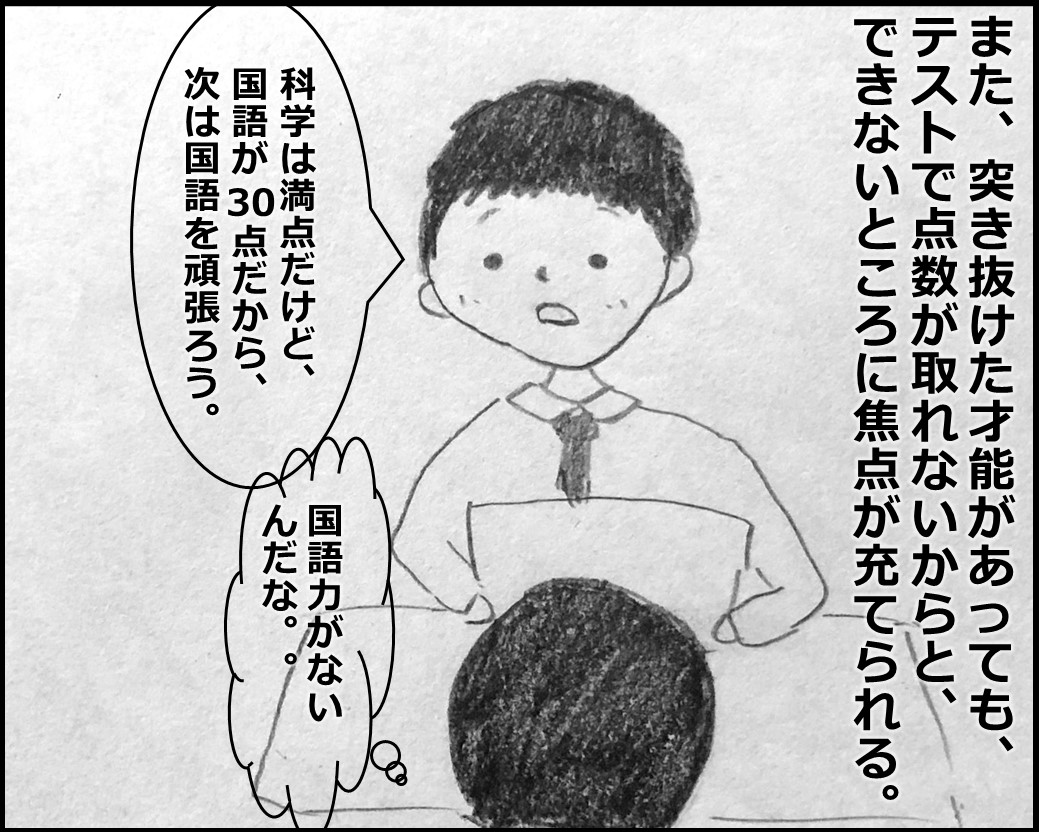 また、突き抜けた才能があっても、
テストで点数が取れないからと、
できないところに焦点が充てられる。
科学は満点だけど、
国語が30点だから、
次は国語を頑張ろう。
国語力がない
んだな。。